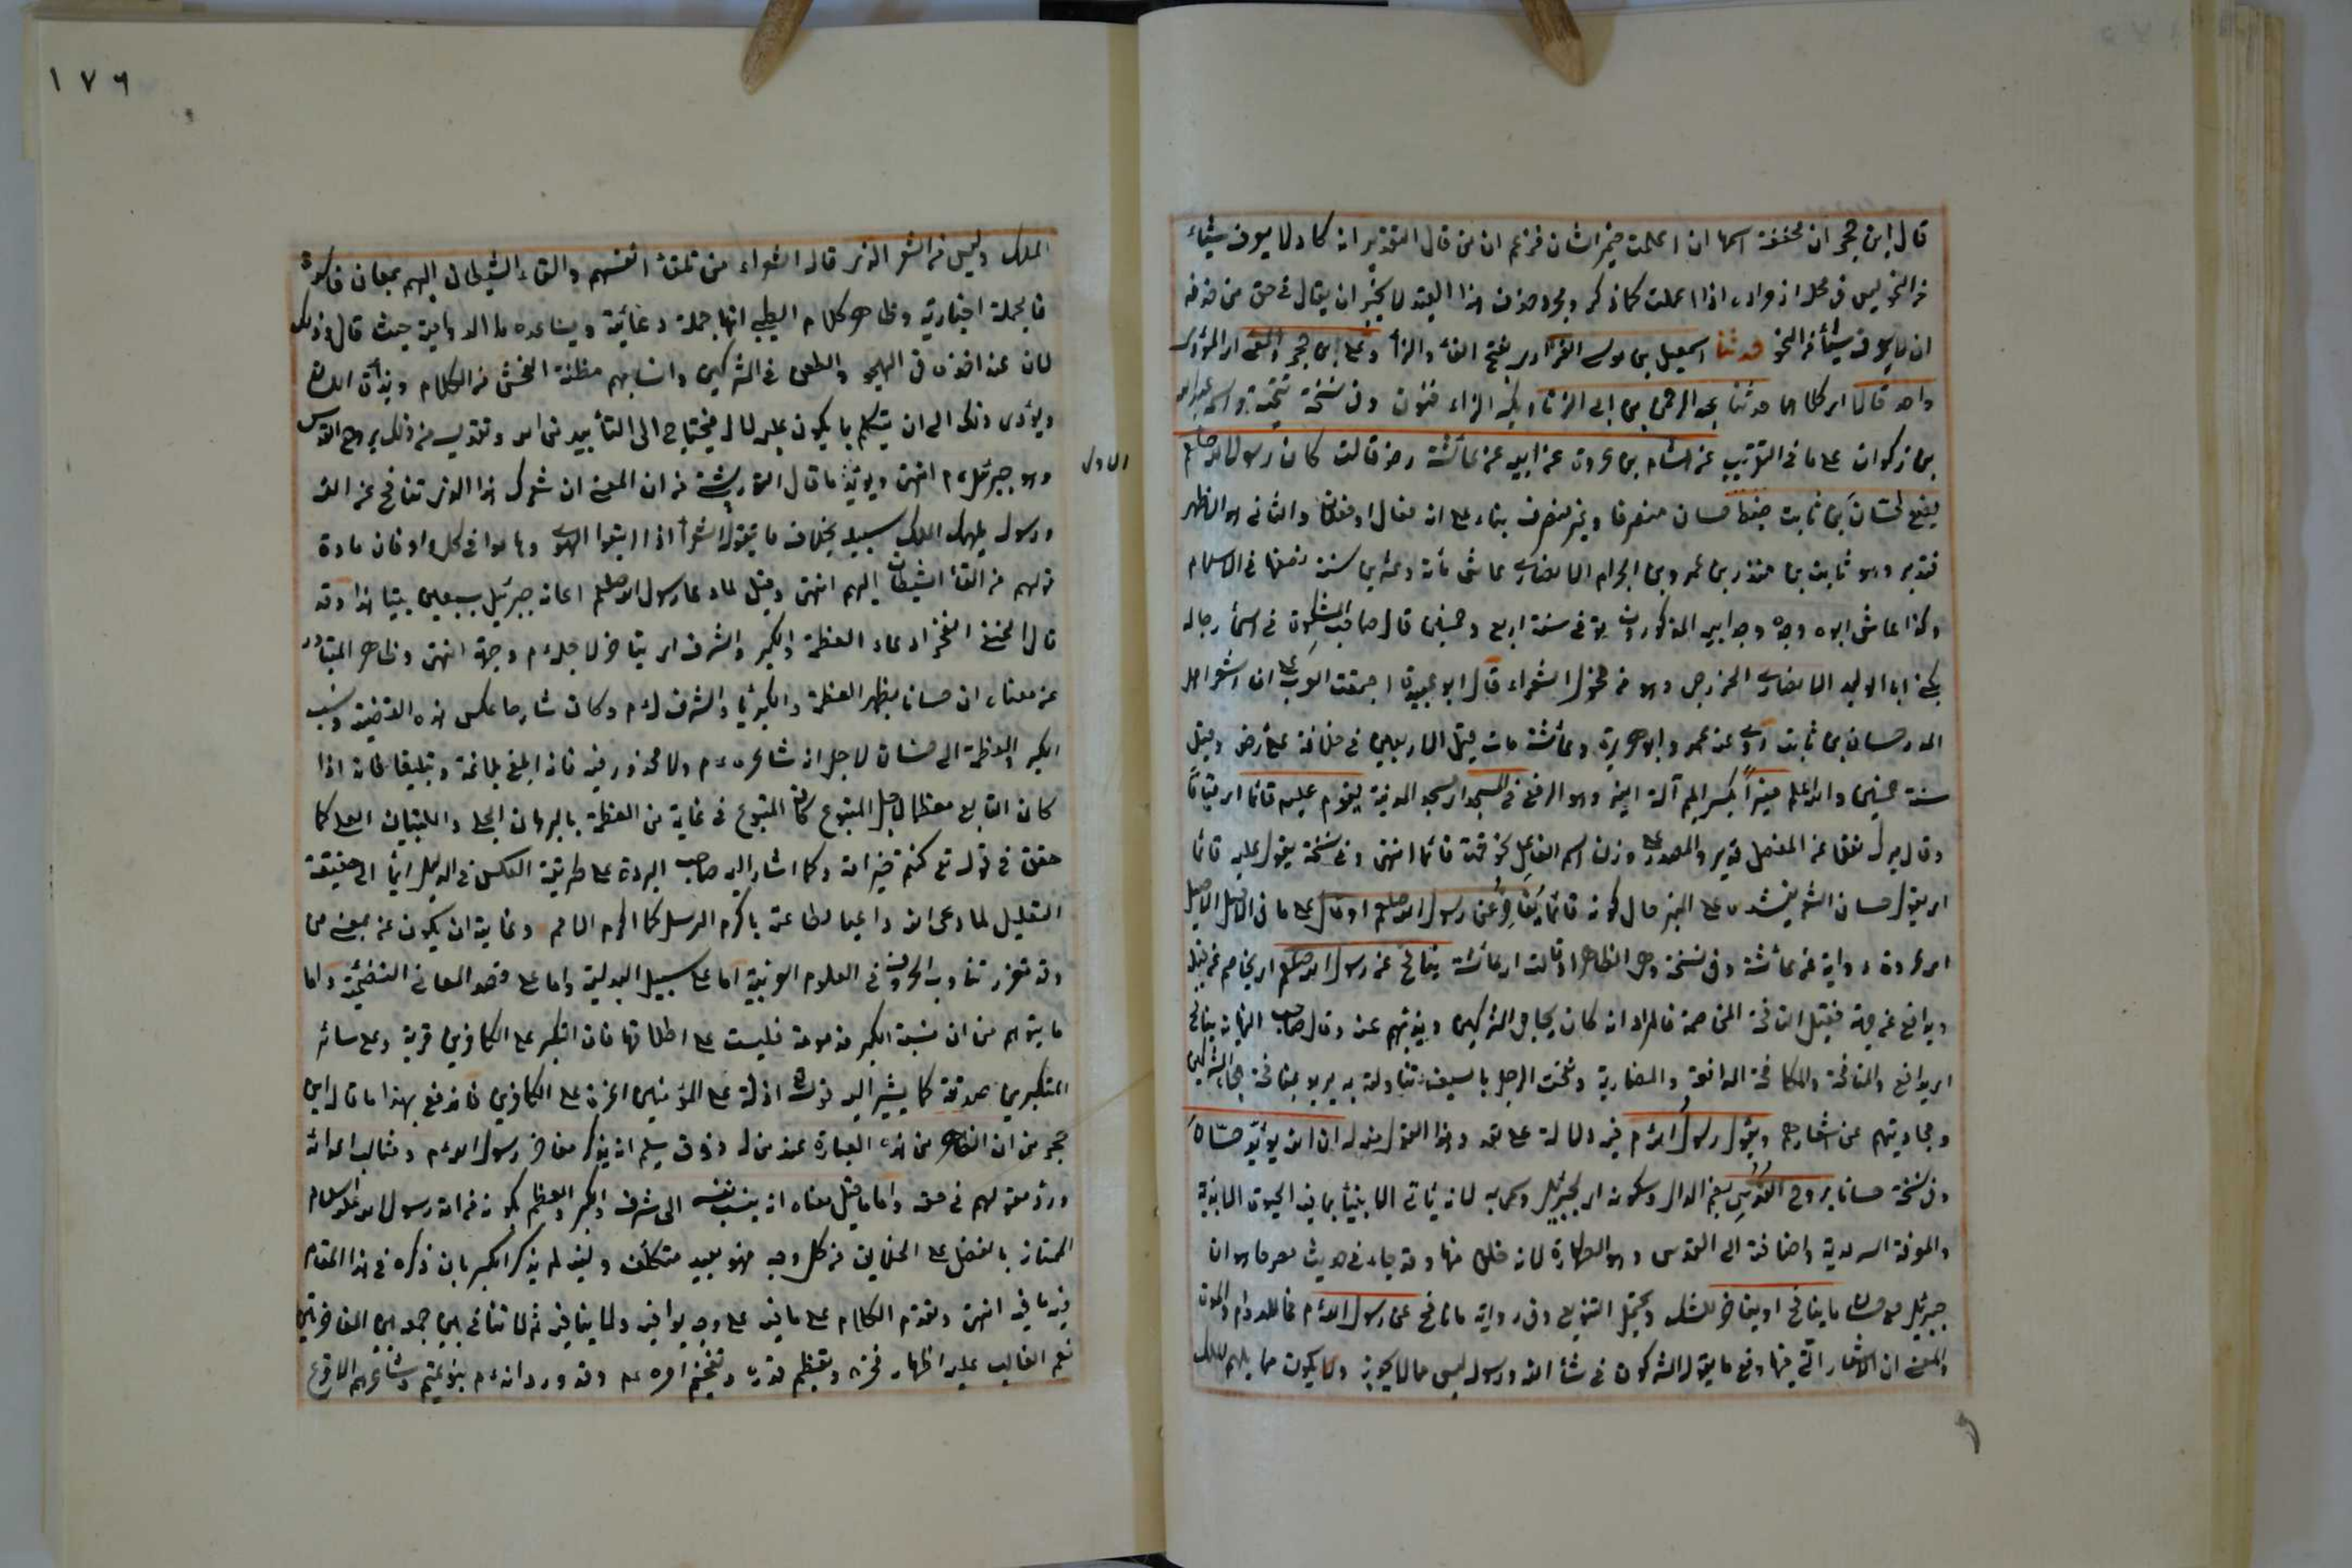 قال ابن حجر ان مخففة اسمها ان اعملت ضمير الشان فزعم ان من قال التقدير انه كاد لا يعرف شيئاء
من النحو ليس في محله از مراده اذا اعملت كما ذكر ومجرد حذف هذا القيد لا يجوز ان يقال في حق من حذفه
انه لا يعرف شيأ من النحو حدثنا اسمعيل بن موسى الفزاري بفتح الفاء والزاء وعلي بن حجر والمعنى اى المؤدى
واحد قالا اى كلاهما حدثنا عبد الرحمن بن ابى الزناد بكسر الزاء فنون وفى نسخة واسمه عبد الله
بن ذكوان على ما في التقريب عن هشام بن عروة عن ابيه عن عائشة رضـ قالت كان رسول الله صلعم
يضع لحسان بن ثابت ضبط حسان منصرفا وغير منصرف بناء على انه فعال او فعلان والثانى هو الاظهر
فتدبر وهو ثابت بن منذر بن عمرو بن الحرام الانصارى عاش مأة وعشرين سنة نصفها فى الاسلام
وكذا عاش ابوه وجده وجد ابيه المذكورون توفى سنة اربع وخمسين قال صاحب المشكوة فى اسماء رجاله
يكنى ابا الوليد الانصارى الخزرجى وهو من فحول الشعراء قال ابو عبيدة اجمعت العرب على ان اشعر اهل
المدر حسان بن ثابت روى عنه عمر وابو هريرة وعائشة مات قبل الاربعين فى خلافة على رضـ وقيل
سنة خمسين والله اعلم منبراً بكسر الميم آلة النبر وهو الرفع فى المسجد اى مسجد المدينة يقوم عليه قائما اى قياما
وقال ميرك نقلا عن المفصل قد يرد المصدر على وزن اسم الفاعل نحو قمت قائما انتهى وفى نسخة يقول عليه قائما
اى يقول حسان الشعر وينشده على المنبر حال كونه قائما يفاخر عن رسول الله صلعم او قال على ما فى الاصل الاصيل
اى عروة رواية عن عائشة وفى نسخة وهى الظاهر او قالت اى عائشة ينافح عن رسول الله صلعم اى يخاصم عن قبله
ويدافع عن جهته فقيل المنافحة المخاصمة فالمراد انه كان يهاجى المشركين ويذمهم عنه وقال صاحب النهاية ينافح
اى يدافع والمنافحة والمكافحة المدافعة والمضاربة ونفحت الرجل بالسيف تناولته به يريد بمنافحته هجاء المشركين
ومجاوبتهم عن اشعارهم ويقول رسول الله م فيه دلالة على تعدد هذا القول منه له ان الله يؤيد حسان
وفى نسخة حسانا بروح القدس بضم الدال وسكونه اى بجبرئيل وسمى به لانه ياتى الانبياء بما فيه الحيوة الابدية
والمعرفة السرمدية واضافته الى القدس وهو الطهارة لانه خلق منها وقد جاء فى حديث مصرحا هو ان
جبرئيل مع حسان ما ينافح او يفاخر للشك ويحتمل التنويع وفى رواية ما نافح عن رسول الله م فما للدوام والمدة
والمعنى ان الاشعار التى فيها دفع ما يقوله المشركون فى شأن الله ورسوله ليس مما لا يجوز ولا يكون مما يلهم الملك
١٧٦
الملك وليس من الشعر الذى قاله الشعراء من تلقاء انفسهم والقاء الشيطان اليهم بمعان فاسدة
فالجملة اخبارية وظاهر كلام الطيبى انها جملة دعائية ويساعده ما الدوامية حيث قال وذلك
لان عند اخذه فى الهجو والطعن فى المشركين وانسابهم مظنة الفحش من الكلام وبذاءة اللسان
ويؤدى ذلك الى ان يتكلم بما يكون عليه لا له فيحتاج الى التأييد من الله وتقديسه من ذلك بروح القدس
وهو جبرئيل ع م انتهى ويؤيده ما قال التوربشتى من ان المعنى ان شعرك هذا الذى تنافح عن الله
الاول
ورسوله يلهمك الملك سبيله بخلاف ما يتقوله الشعراء اذا اتبعوا الهوى وهاموا فى كل واد فان مادة
قولهم من القاء الشيطان اليهم انتهى وقيل لما دعا رسول الله صلعم اعانه جبرئيل بسبعين بيتا هذا وقد
قال الحنفى الفخر ادعاء العظمة والكبر والشرف اى يفاخر لاجله ع م وجهته انتهى وظاهر المتبادر
عن معناه ان حسانا يظهر العظمة والكبرياء والشرف له ع م وكان شارحا عكس هذه القضية ونسب
الكبر والعظمة الى حسان لاجل انه شاعره ع م ولا محذور فيه فانه ابلغ بلاغة وتبليغا فانه اذا
كان التابع معظما لاجل المتبوع كان المتبوع فى غاية من العظمة بالبرهان الجلى والتبيان العلى كما
حقق فى قوله تع كنتم خير امة وكما اشار اليه صاحب البردة على طريقة العكس فى الدليل ايماء الى حقيقة
التعليل لما دعى الله داعينا لطاعته باكرم الرسل كنا اكرم الامم وغايته ان يكون عن بمعنى من
وقد تقرر تناوب الحروف فى العلوم العربية اما على سبيل البدلية واما على قصد المعانى التضمينية واما
ما يتوهم من ان نسبة الكبر مذمومة فليست على اطلاقها فان التكبر على الكافرين قربة وعلى سائر
المتكبرين صدقة كما يشير اليه قوله تع اذلة على المؤمنين اعزة على الكافرين فاندفع بهذا ما قال ابن
حجر من ان الظاهر من هذه العبارة عند من له ذوق سليم انه يذكر مفاخر رسول الله ع م ومثالب اعدائه
ورد مقولهم فى حقه واما ما قيل معناه انه ينسب نفسه الى شرف والكبر والعظم بكونه من امة رسول الله عليه السلام
الممتاز بالفضل على الخلائق من كل وجه فهو بعيد متكلف وليته لم يذكر الكبر بان ذكره فى هذا المقام
فيه ما فيه انتهى وتقدم الكلام على ما فيه على وجه يوافيه ولا ينافيه ثم لا تنافى بين جمعه بين المفاخرتين
نعم الغالب عليه اظهار فخره وتعظيم قدره وتفخيم امره ع م وقد ورد انه ع م بنو تميم وشاعرهم الاقرع